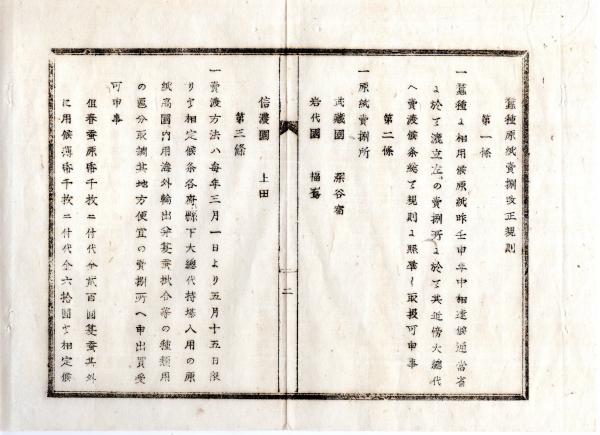 蠶種原紙賣捌改正規則
第一條
一蠶種ニ相用候原紙昨壬申年中相達候通當省
ニ於テ漉立左ノ賣捌所ニ於テ其近傍大總代
ヘ賣渡候条總テ規則ニ照準シ取扱可申事
第二條
一原紙賣捌所
武藏國 深谷宿
岩代國 福島
二
信濃國 上田
第三條
一賣渡方法ハ毎年三月一日ヨリ五月十五日限
リト相定候条各府縣下大總代持場入用ノ原
紙高國内用海外輸出分夏蚕掛合等ノ種類用
の區分取調其地方便宜の賣捌所へ申出買受
可申事
但春蚕原紙千枚ニ付代金貳百圓夏蚕其外
に用候薄紙千枚ニ付代金六拾圓ト相定候